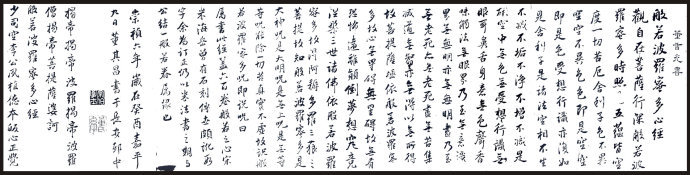 般若波羅蜜多心經
觀自在菩薩行深般若波
羅蜜多時照見五蘊皆空
度一切苦厄舍利子色不異
空空不異色色即是空空
即是色受想行識亦復如
是舍利子是諸法空相不生
不滅不垢不淨不增不減是
故空中無色無受想行識無
眼耳鼻舌身意無色聲香
味觸法無眼界乃至無意識
界無無明亦無無明盡乃至
無老死亦無老死盡無苦集
滅道無智亦無得以無所得
故菩提薩埵依般若波羅蜜
多故心無罣礙無罣礙故無有
恐怖遠離顛倒夢想究竟
涅槃三世諸佛依般若波羅
蜜多故得阿耨多羅三藐三
菩提故知般若波羅蜜多是
大神咒是大明咒是無上咒是無等
等咒能除一切苦真實不虛故說般
若波羅蜜多咒即說咒曰
屬書此經蓋六百卷般若之心宗
米海岳曾有石刻傳世頗訛
字余為訂正仍以米法書之歸
公結一般若眷屬緣也
崇禎六年歲在癸酉嘉平
九日董其昌書于長安邸中
揭帝揭帝波羅揭帝波羅
僧揭帝菩提薩婆訶
般若波羅蜜多心經
少司空李公夙植德本皈心正覺